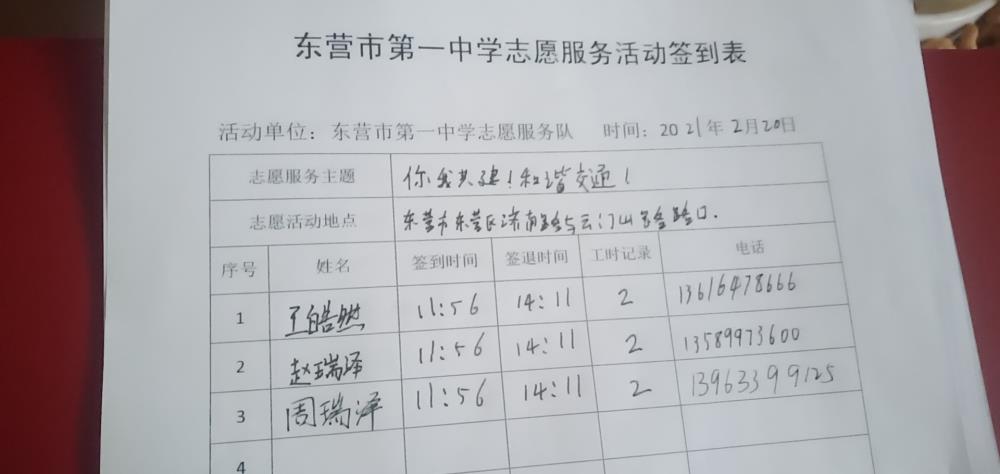 东营市第一中学志愿服务活动签到表
活动单位：东营市第一中学志愿服务队 时间：2021年2月20日
志愿服务主题 你我共建！和谐交通！
志愿活动地点 东营市东营区济南路与云门山路路口.
序号 姓名 签到时间 签退时间 工时记录 电话
1 王皓然 11:56 14:11 2 13616478666
2 赵瑞泽 11:56 14:11 2 13589973600
3 周瑞泽 11:56 14:11 2 13963399125
4